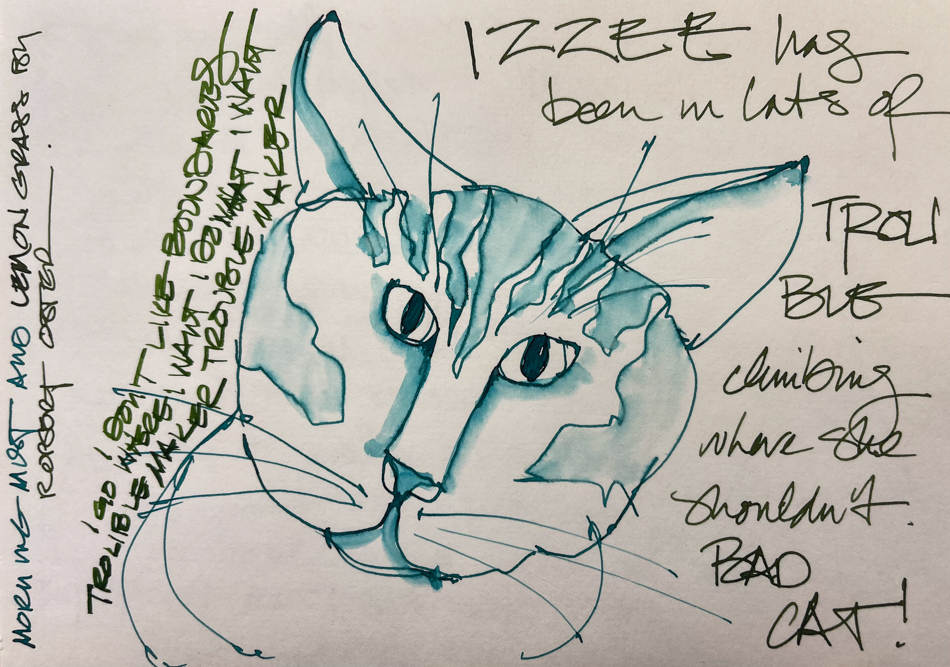 IZZEE has
been in lots of
TROU
BLE
climbing
where she
shouldn't.
BAD
CAT!
I DON'T LIKE BOUNDARIES
I GO WHERE I WANT I DO WHAT I WANT
TROUBLE MAKER TROUBLE MAKER
MORNING MIST AND LEMON GRASS FROM
ROBERT OSTER.